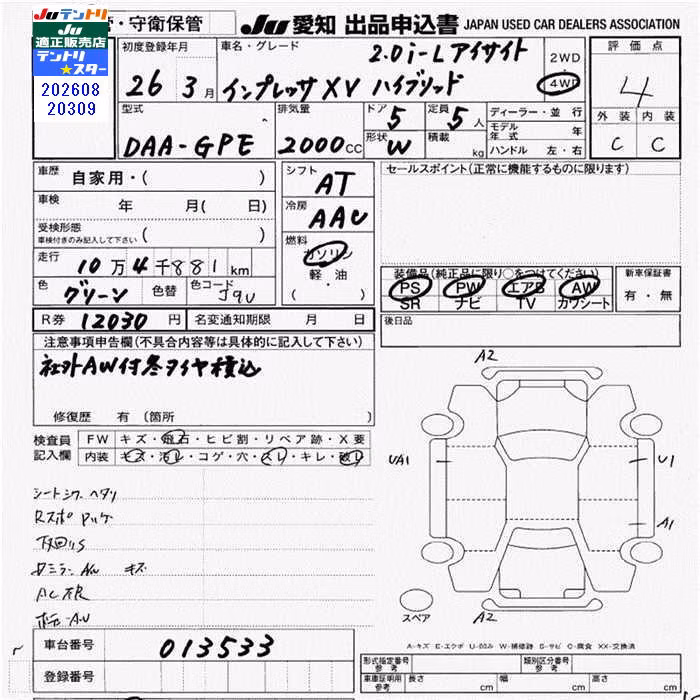 Juテントリ
Ju
適正販売店
テントリ
★スター
202608
20309
・守衛保管
Ju 愛知 出品申込書 JAPAN USED CAR DEALERS ASSOCIATION
初度登録年月
26 3月
車名・グレード
2.0i-Lアイサイト
インプレッサXV ハイブリッド
2WD
4WD
評価点
4
外装 内装
C C
型式
DAA-GPE
排気量
2000cc
ドア 5
定員 5人
形状 W
積載 kg
ディーラー・並行
モデル年式 年
ハンドル 左・右
車歴 自家用・( )
車検 年 月( 日)
受検形態
車検付きのみ記入して下さい ( )
走行 10万4千881km
色 グリーン 色替 色コード J9U
シフト AT
冷房 AAC
燃料
ガソリン
軽・油
( )
セールスポイント(正常に機能するものに限ります)
装備品(純正品に限り○をつけてください)
PS PW エアB AW
SR ナビ TV カワシート
新車保証書
有・無
R券 12030円 名変通知期限 月 日
後日品
注意事項申告欄(不具合内容等は具体的に記入して下さい)
社外AW付冬タイヤ積込
修復歴 有 〔箇所
検査員
記入欄
FW キズ・飛石・ヒビ割・リペア跡・X要
内装 キズ・汚レ・コゲ・穴・スレ・キレ・破レ
シートシワ ヘタリ
下回りS
キズ
A2
UA1
U1
A1
スペア
A2
A-キズ E-エクボ U-凹み W-補修跡 S-サビ C-腐食 XX-交換済
車台番号 013533
登録番号
形式指定番号
参考
類別区分番号
参考
車庫証明用
参考
長さ cm 幅 cm 高さ cm